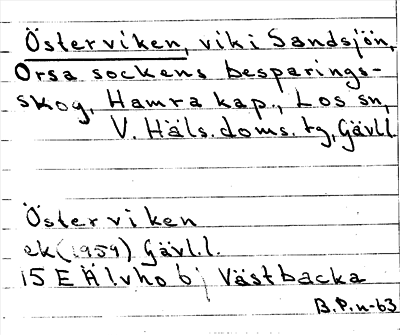 Österviken, vik i Sandsjön,
Orsa sockens besparings-
skog, Hamra kap., Los sn,
V. Häls. doms. tg, Gävl.l.
Österviken
ek (1959) Gävl.l.
15 E Älvho b; Västbacka
B.P.n-63